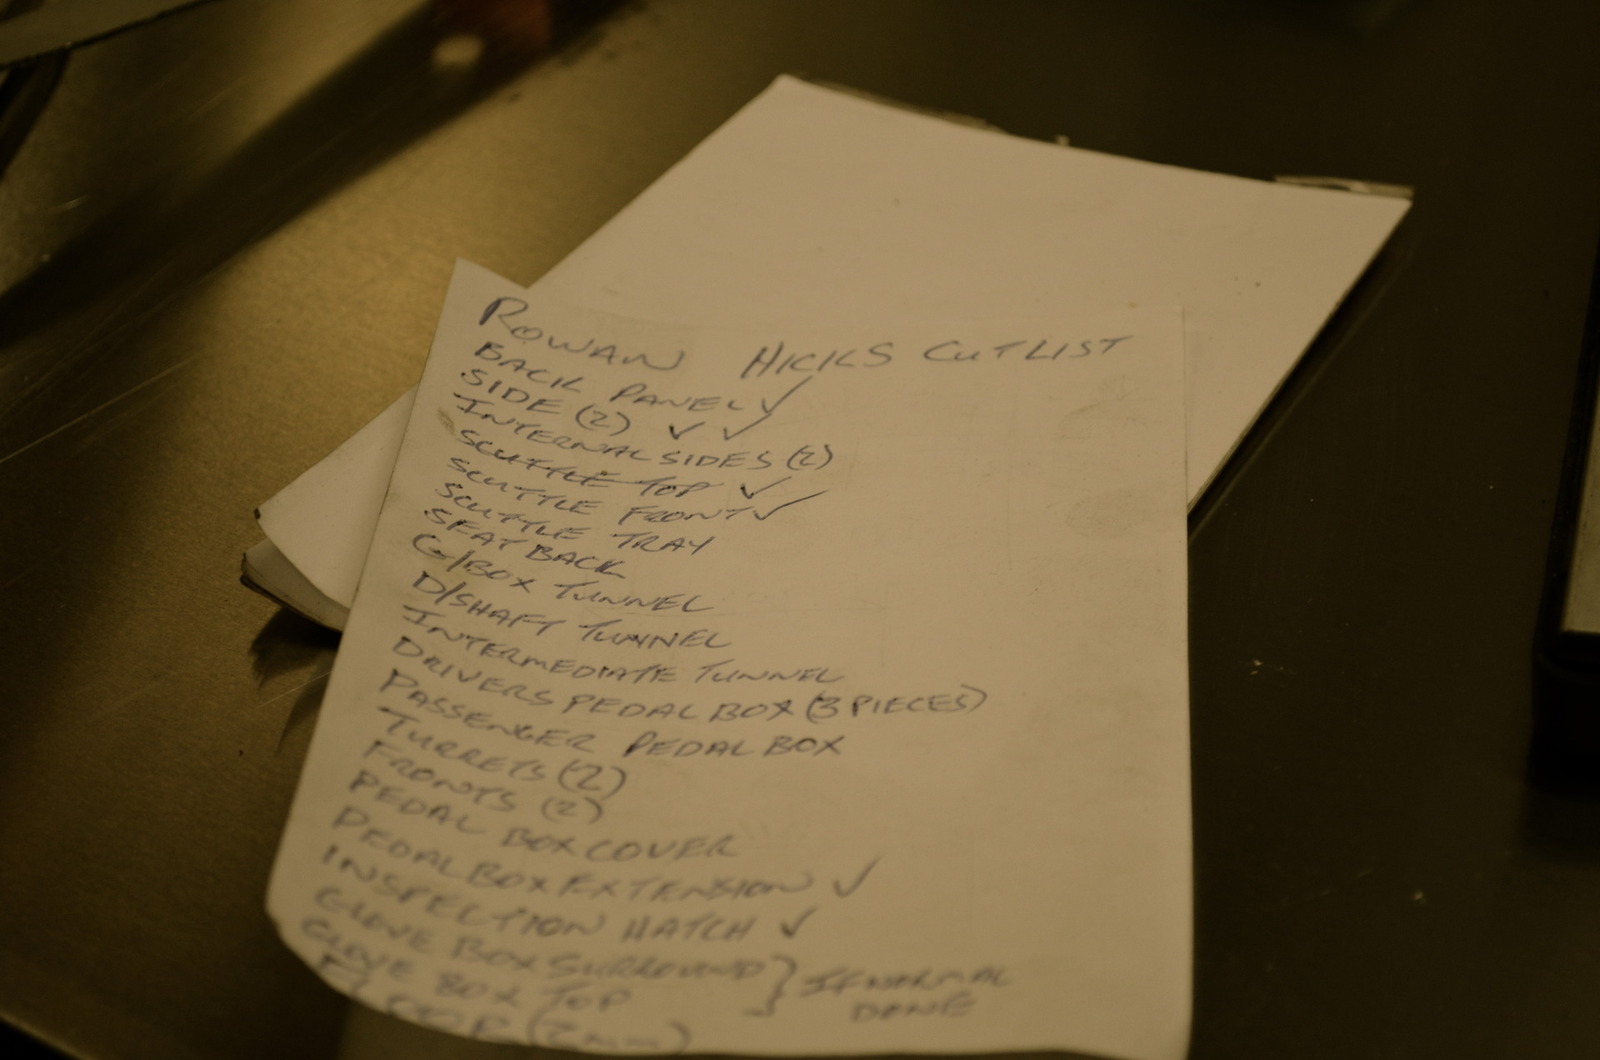 ROWAN HICKS CUTLIST
BACK PANEL ✓
SIDE (2) ✓ ✓
INTERNAL SIDES (2)
SCUTTLE TOP ✓
SCUTTLE FRONT ✓
SCUTTLE TRAY
SEAT BACK
G/BOX TUNNEL
D/SHAFT TUNNEL
INTERMEDIATE TUNNEL
DRIVERS PEDAL BOX (3 PIECES)
PASSENGER PEDAL BOX
TURRETS (2)
FRONTS (2)
PEDAL BOX COVER
PEDAL BOX EXTENSION ✓
INSPECTION HATCH ✓
GLOVE BOX SURROUND } IF NORMAL
GLOVE BOX TOP } DONE
FLOOR (2mm)